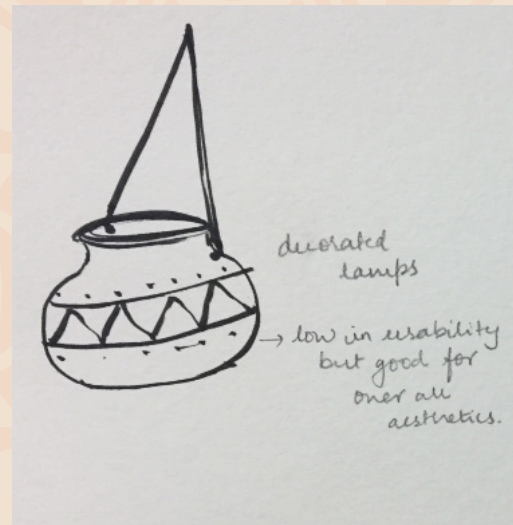 decorated
lamps
→ low in usability
but good for
over all
aesthetics.